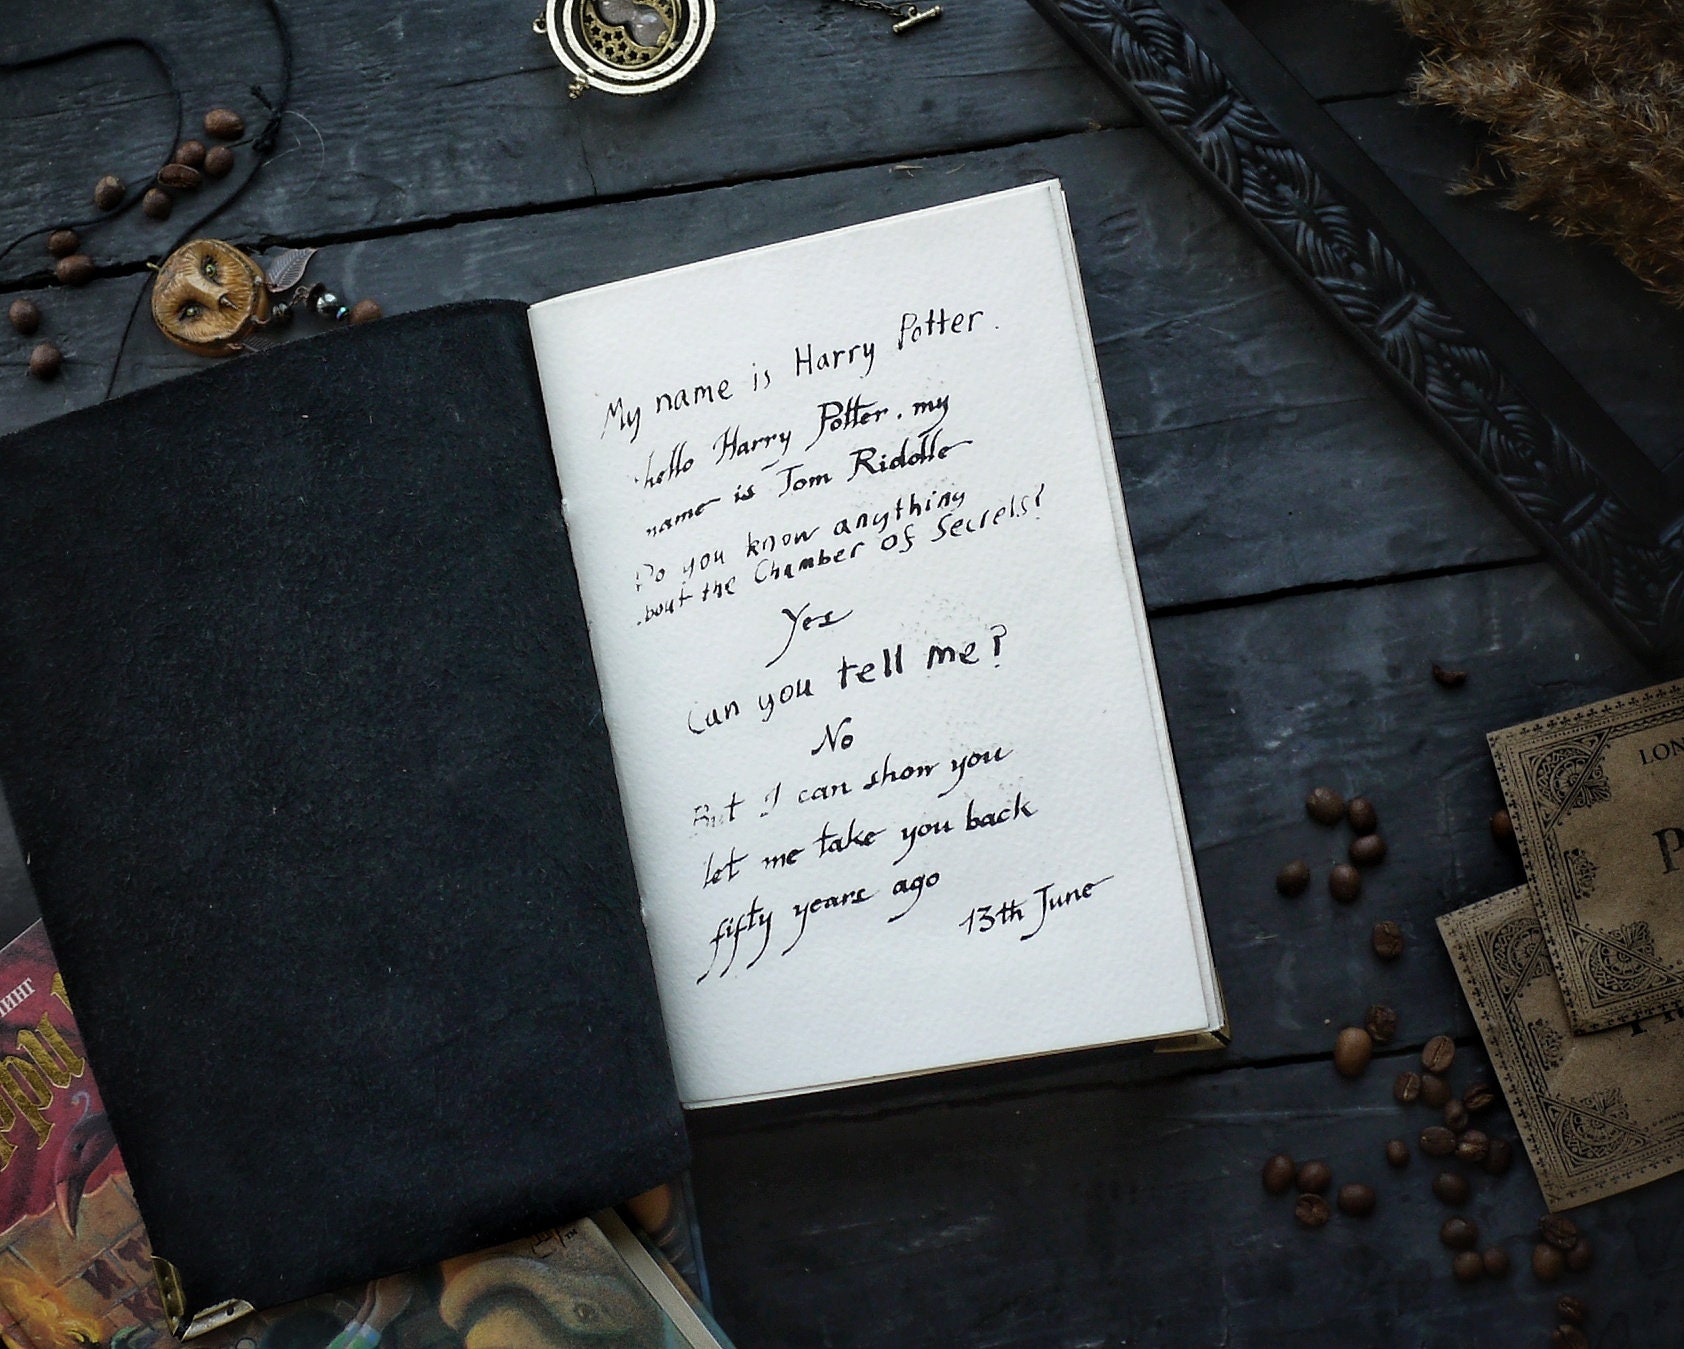 My name is Harry Potter.
hello Harry Potter. my
name is Tom Riddle
Do you know anything
bout the Chamber of Secrets?
Yes
Can you tell me?
No
But I can show you
let me take you back
fifty years ago
13th June
LON
P
ЛИНГ
рри